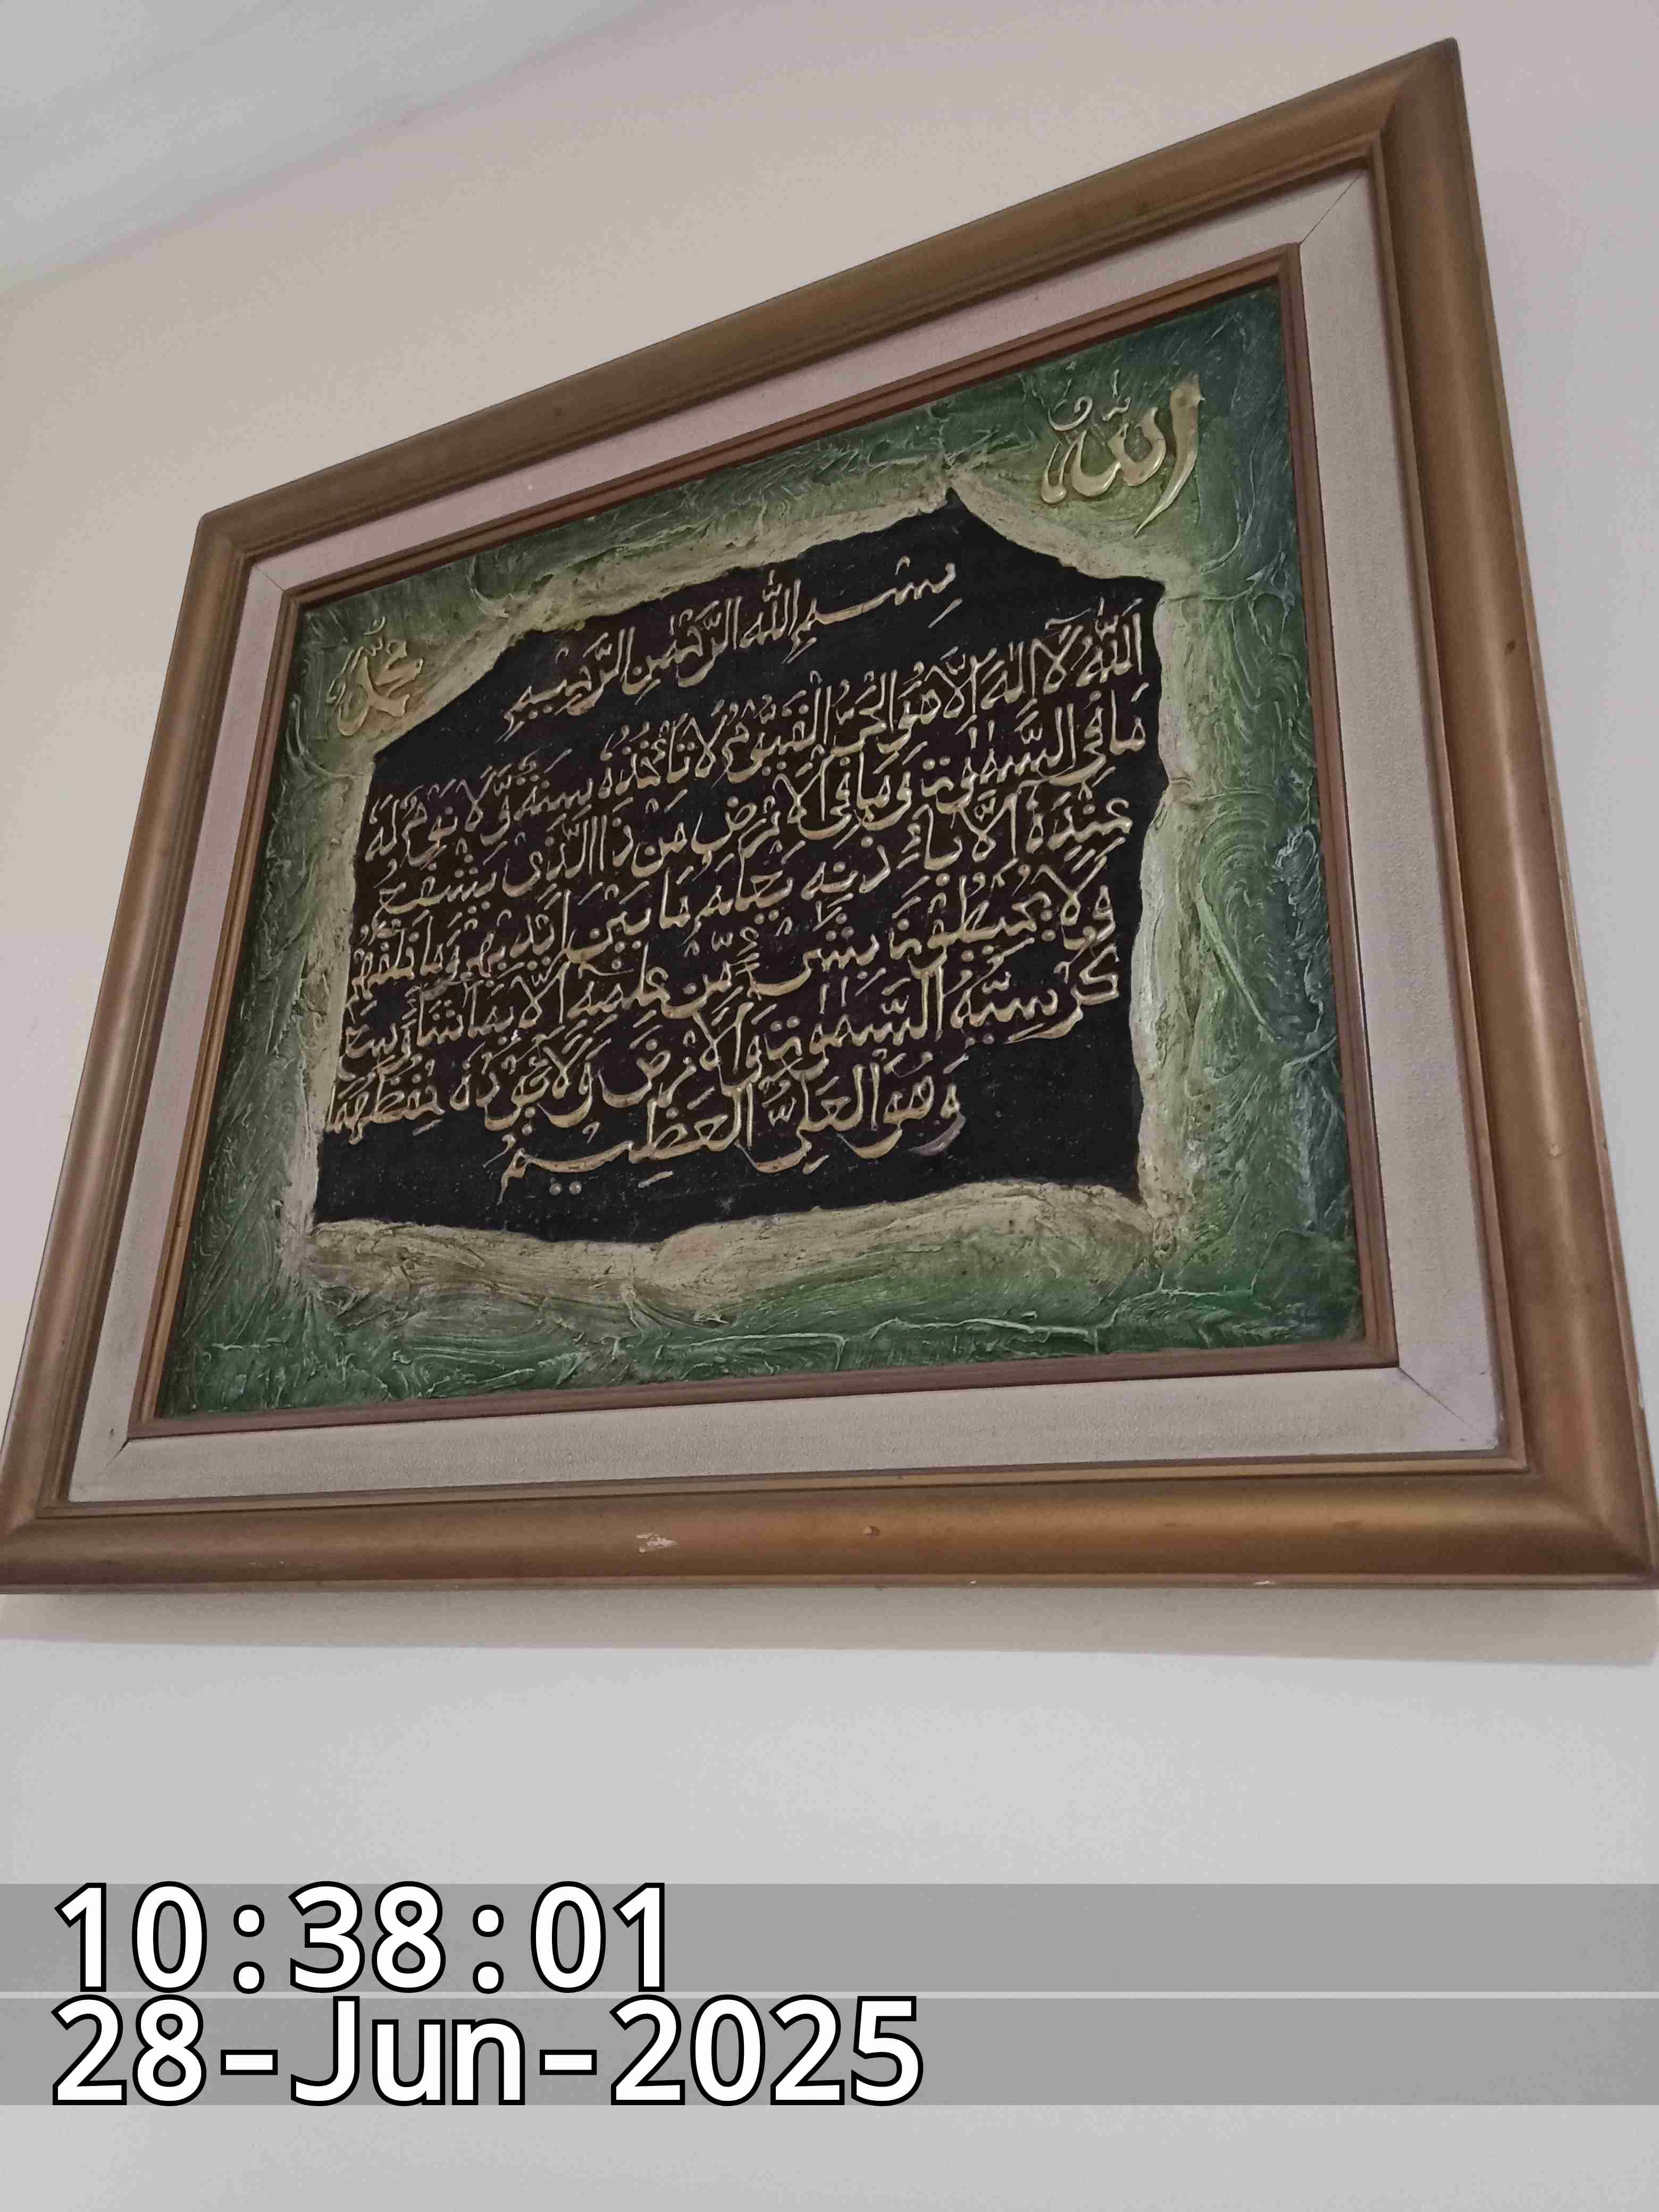 الله
محمد
بِسْمِ اللهِ الرَّحْمٰنِ الرَّحِيْمِ
اَللهُ لَآ اِلٰهَ اِلَّا هُوَ الْحَيُّ الْقَيُّوْمُ لَا تَأْخُذُهٗ سِنَةٌ وَّلَا نَوْمٌ لَهٗ
مَا فِى السَّمٰوٰتِ وَمَا فِى الْاَرْضِ مَنْ ذَا الَّذِيْ يَشْفَعُ
عِنْدَهٗ اِلَّا بِاِذْنِهٖ يَعْلَمُ مَا بَيْنَ اَيْدِيْهِمْ وَمَا خَلْفَهُمْ
وَلَا يُحِيْطُوْنَ بِشَيْءٍ مِّنْ عِلْمِهٖ اِلَّا بِمَا شَآءَ وَسِعَ
كُرْسِيُّهُ السَّمٰوٰتِ وَالْاَرْضَ وَلَا يَئُوْدُهٗ حِفْظُهُمَا
وَهُوَ الْعَلِيُّ الْعَظِيْمُ
10:38:01
28-Jun-2025